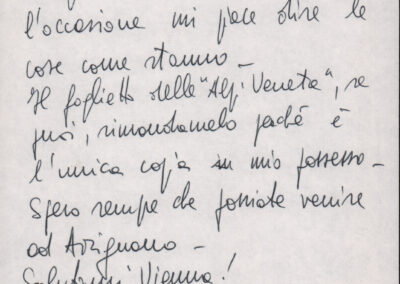 l'occasione mi piace dire le
cose come stanno –
Il foglietto delle "Alpi Venete", se
puoi, rimandamelo perché è
l'unica copia in mio possesso –
Spero sempre che possiate venire
ad Arzignano –
Vienna!